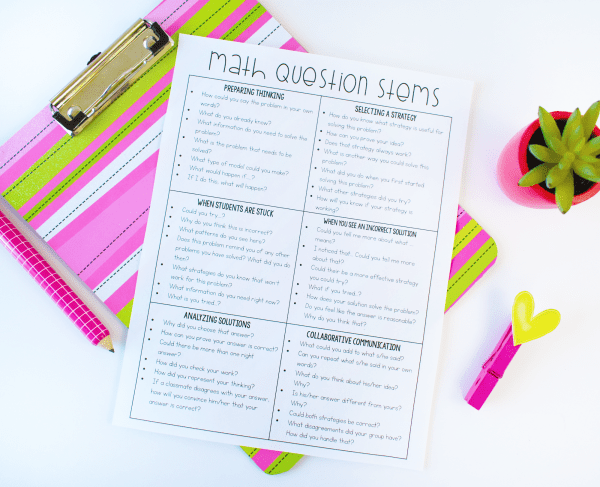 math Question Stems
PREPARING THINKING
How could you say the problem in your own
words?
What do you already know?
What information do you need to solve the
problem?
What is the problem that needs to be
solved?
What type of model could you make?
What would happen if...?
If I do this, what will happen?
SELECTING A STRATEGY
How do you know what strategy is useful for
solving this problem?
How can you prove your idea?
Does that strategy always work?
What is another way you could solve this
problem?
What did you do when you first started
solving this problem?
What other strategies did you try?
How will you know if your strategy is
working?
WHEN STUDENTS ARE STUCK
Could you try...?
Why do you think this is incorrect?
What patterns do you see here?
Does this problem remind you of any other
problems you have solved? What did you do
then?
What strategies do you know that won't
work for this problem?
What information do you need right now?
What is you tried...?
WHEN YOU SEE AN INCORRECT SOLUTION
Could you tell me more about what ...
means?
I noticed that... Could you tell me more
about that?
Could there be a more effective strategy
you could try?
What if you tried...?
How does your solution solve the problem?
Do you feel like the answer is reasonable?
Why do you think that?
ANALYZING SOLUTIONS
Why did you choose that answer?
How can you prove your answer is correct?
Could there be more than one right
answer?
How did you check your work?
How did you represent your thinking?
If a classmate disagrees with your answer,
how will you convince him/her that your
answer is correct?
COLLABORATIVE COMMUNICATION
What could you add to what s/he said?
Can you repeat what s/he said in your own
words?
What do you think about his/her idea?
Why?
Is his/her answer different from yours?
Why?
Could both strategies be correct?
What disagreements did your group have?
How did you handle that?